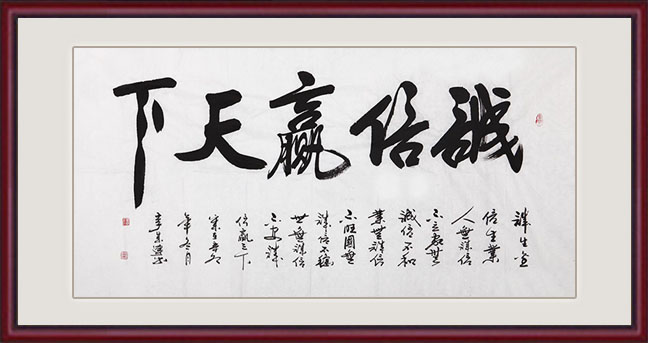 誠信贏天下
誠生金
信生業
人無誠信
不立家無
誠信不和
業無誠信
不旺國無
誠信不穩
世無誠信
不安誠
信贏天下
年冬月